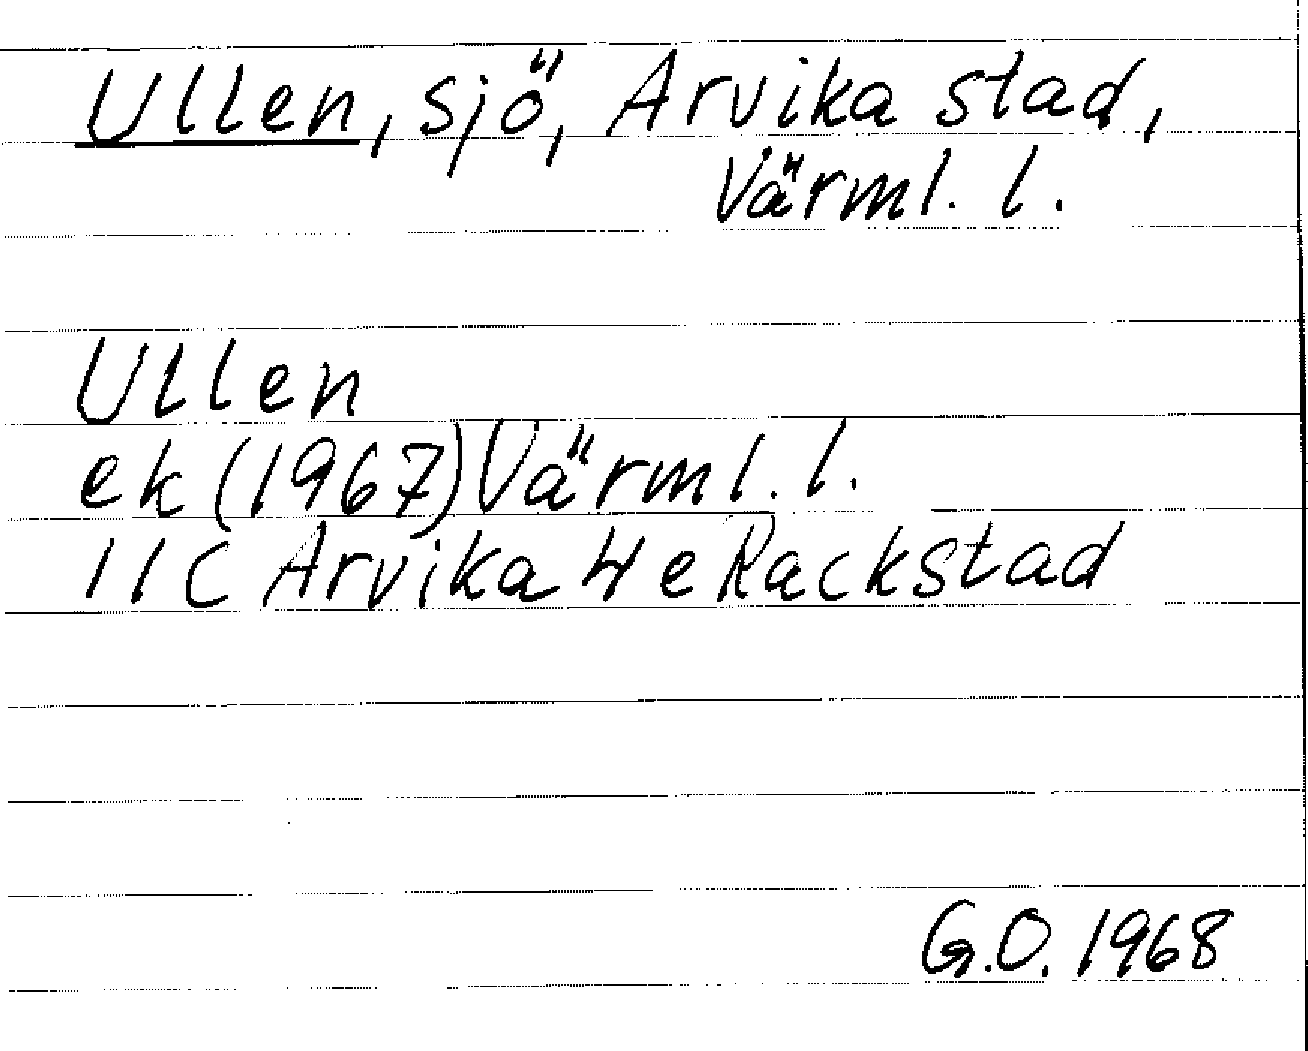 Ullen, sjö, Arvika stad,
Värml. l.
Ullen
ek (1967) Värml. l.
11C Arvika 4e Rackstad
G.O. 1968